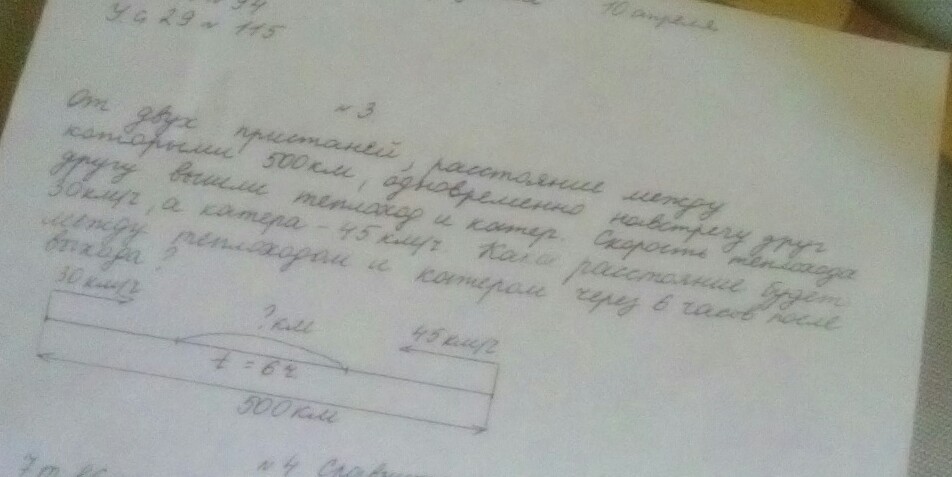 10 апреля
№ 94
У. с 29 № 115
№ 3
От двух пристаней, расстояние между
которыми 500км, одновременно навстречу друг
другу вышли теплоход и катер. Скорость теплохода
30км/ч, а катера - 45 км/ч. Какое расстояние будет
между теплоходом и катером через 6 часов после
выхода?
30 км/ч
? км
45км/ч
t = 6 ч
500 км
№ 4